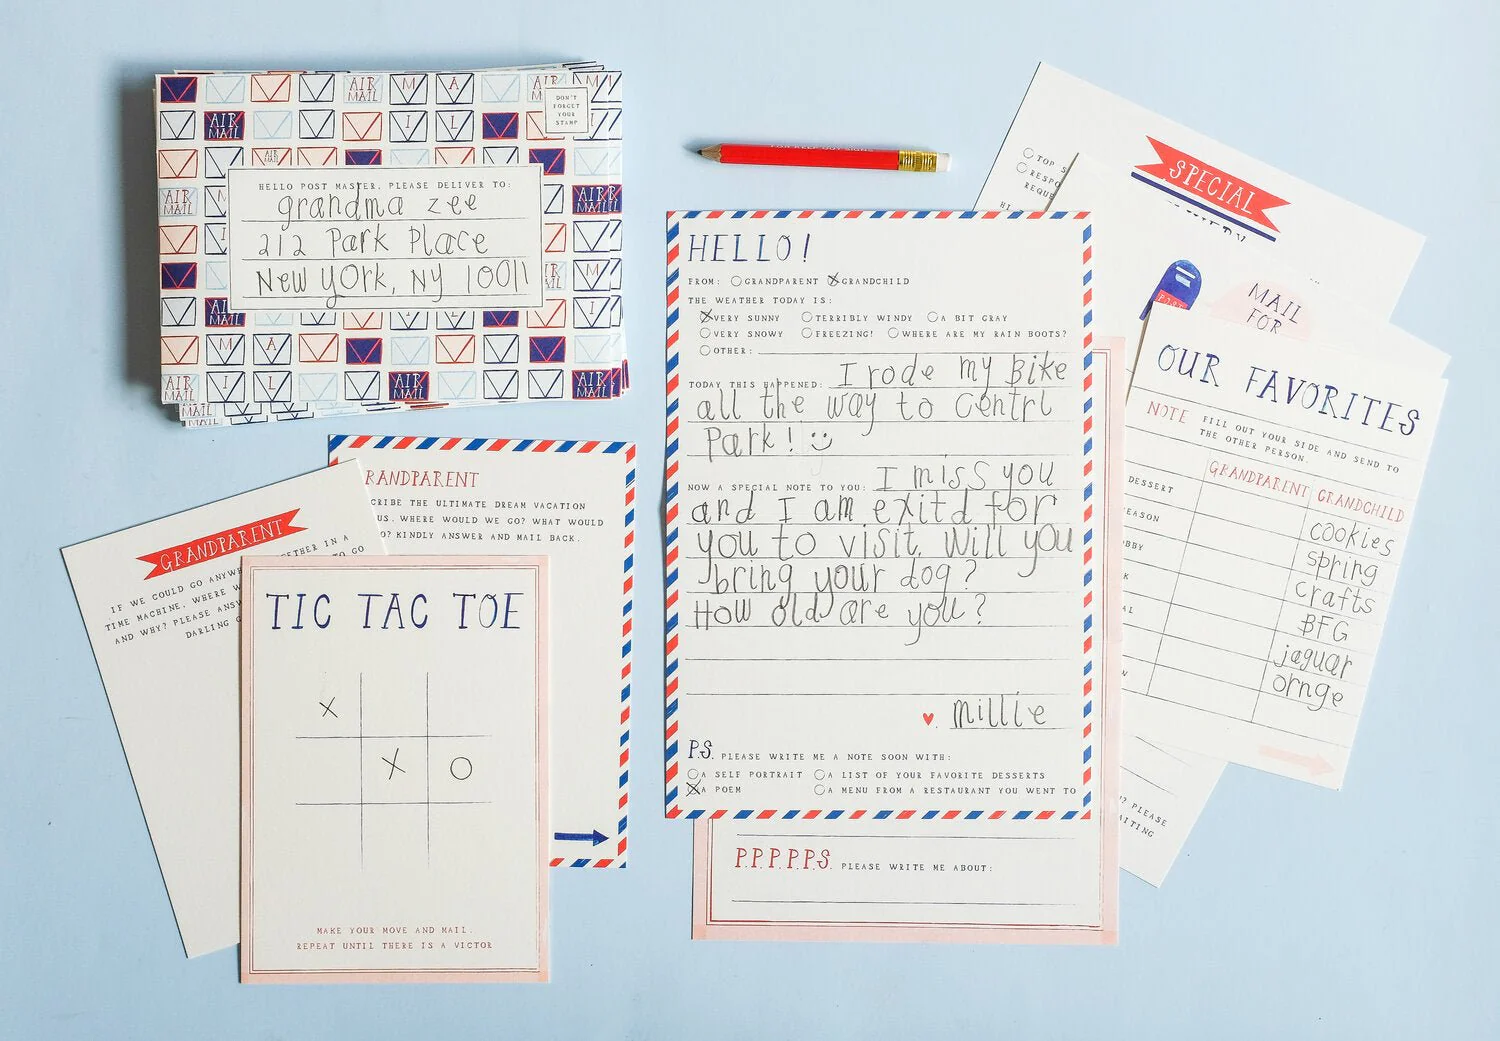 DON'T
FORGET
YOUR
STAMP
AIR MAIL
HELLO POST MASTER, PLEASE DELIVER TO:
grandma zee
212 Park Place
New york, NY 10011
GRANDPARENT
IF WE COULD GO ANYW
ETHER IN A
TIME MACHINE, WHERE W
TO GO
AND WHY? PLEASE ANSW
DARLING G
RANDPARENT
CRIBE THE ULTIMATE DREAM VACATION
US. WHERE WOULD WE GO? WHAT WOULD
O? KINDLY ANSWER AND MAIL BACK.
TIC TAC TOE
X
X O
MAKE YOUR MOVE AND MAIL.
REPEAT UNTIL THERE IS A VICTOR
HELLO!
FROM: GRANDPARENT GRANDCHILD
THE WEATHER TODAY IS:
VERY SUNNY TERRIBLY WINDY A BIT GRAY
VERY SNOWY FREEZING! WHERE ARE MY RAIN BOOTS?
OTHER:
TODAY THIS HAPPENED: I rode my Bike
all the way to Centrl
Park! :)
NOW A SPECIAL NOTE TO YOU: I miss you
and I am exitd for
you to visit. Will you
bring your dog?
How old are you?
♥ millie
P.S. PLEASE WRITE ME A NOTE SOON WITH:
A SELF PORTRAIT A LIST OF YOUR FAVORITE DESSERTS
A POEM A MENU FROM A RESTAURANT YOU WENT TO
P.P.P.P.P.S. PLEASE WRITE ME ABOUT:
TOP S
RESPO
REQU
SPECIAL
MAIL
FOR
OUR FAVORITES
NOTE FILL OUT YOUR SIDE AND SEND TO
THE OTHER PERSON.
GRANDPARENT GRANDCHILD
DESSERT cookies
EASON spring
BBY crafts
K BFG
AL jaguar
ornge
? PLEASE
AITING